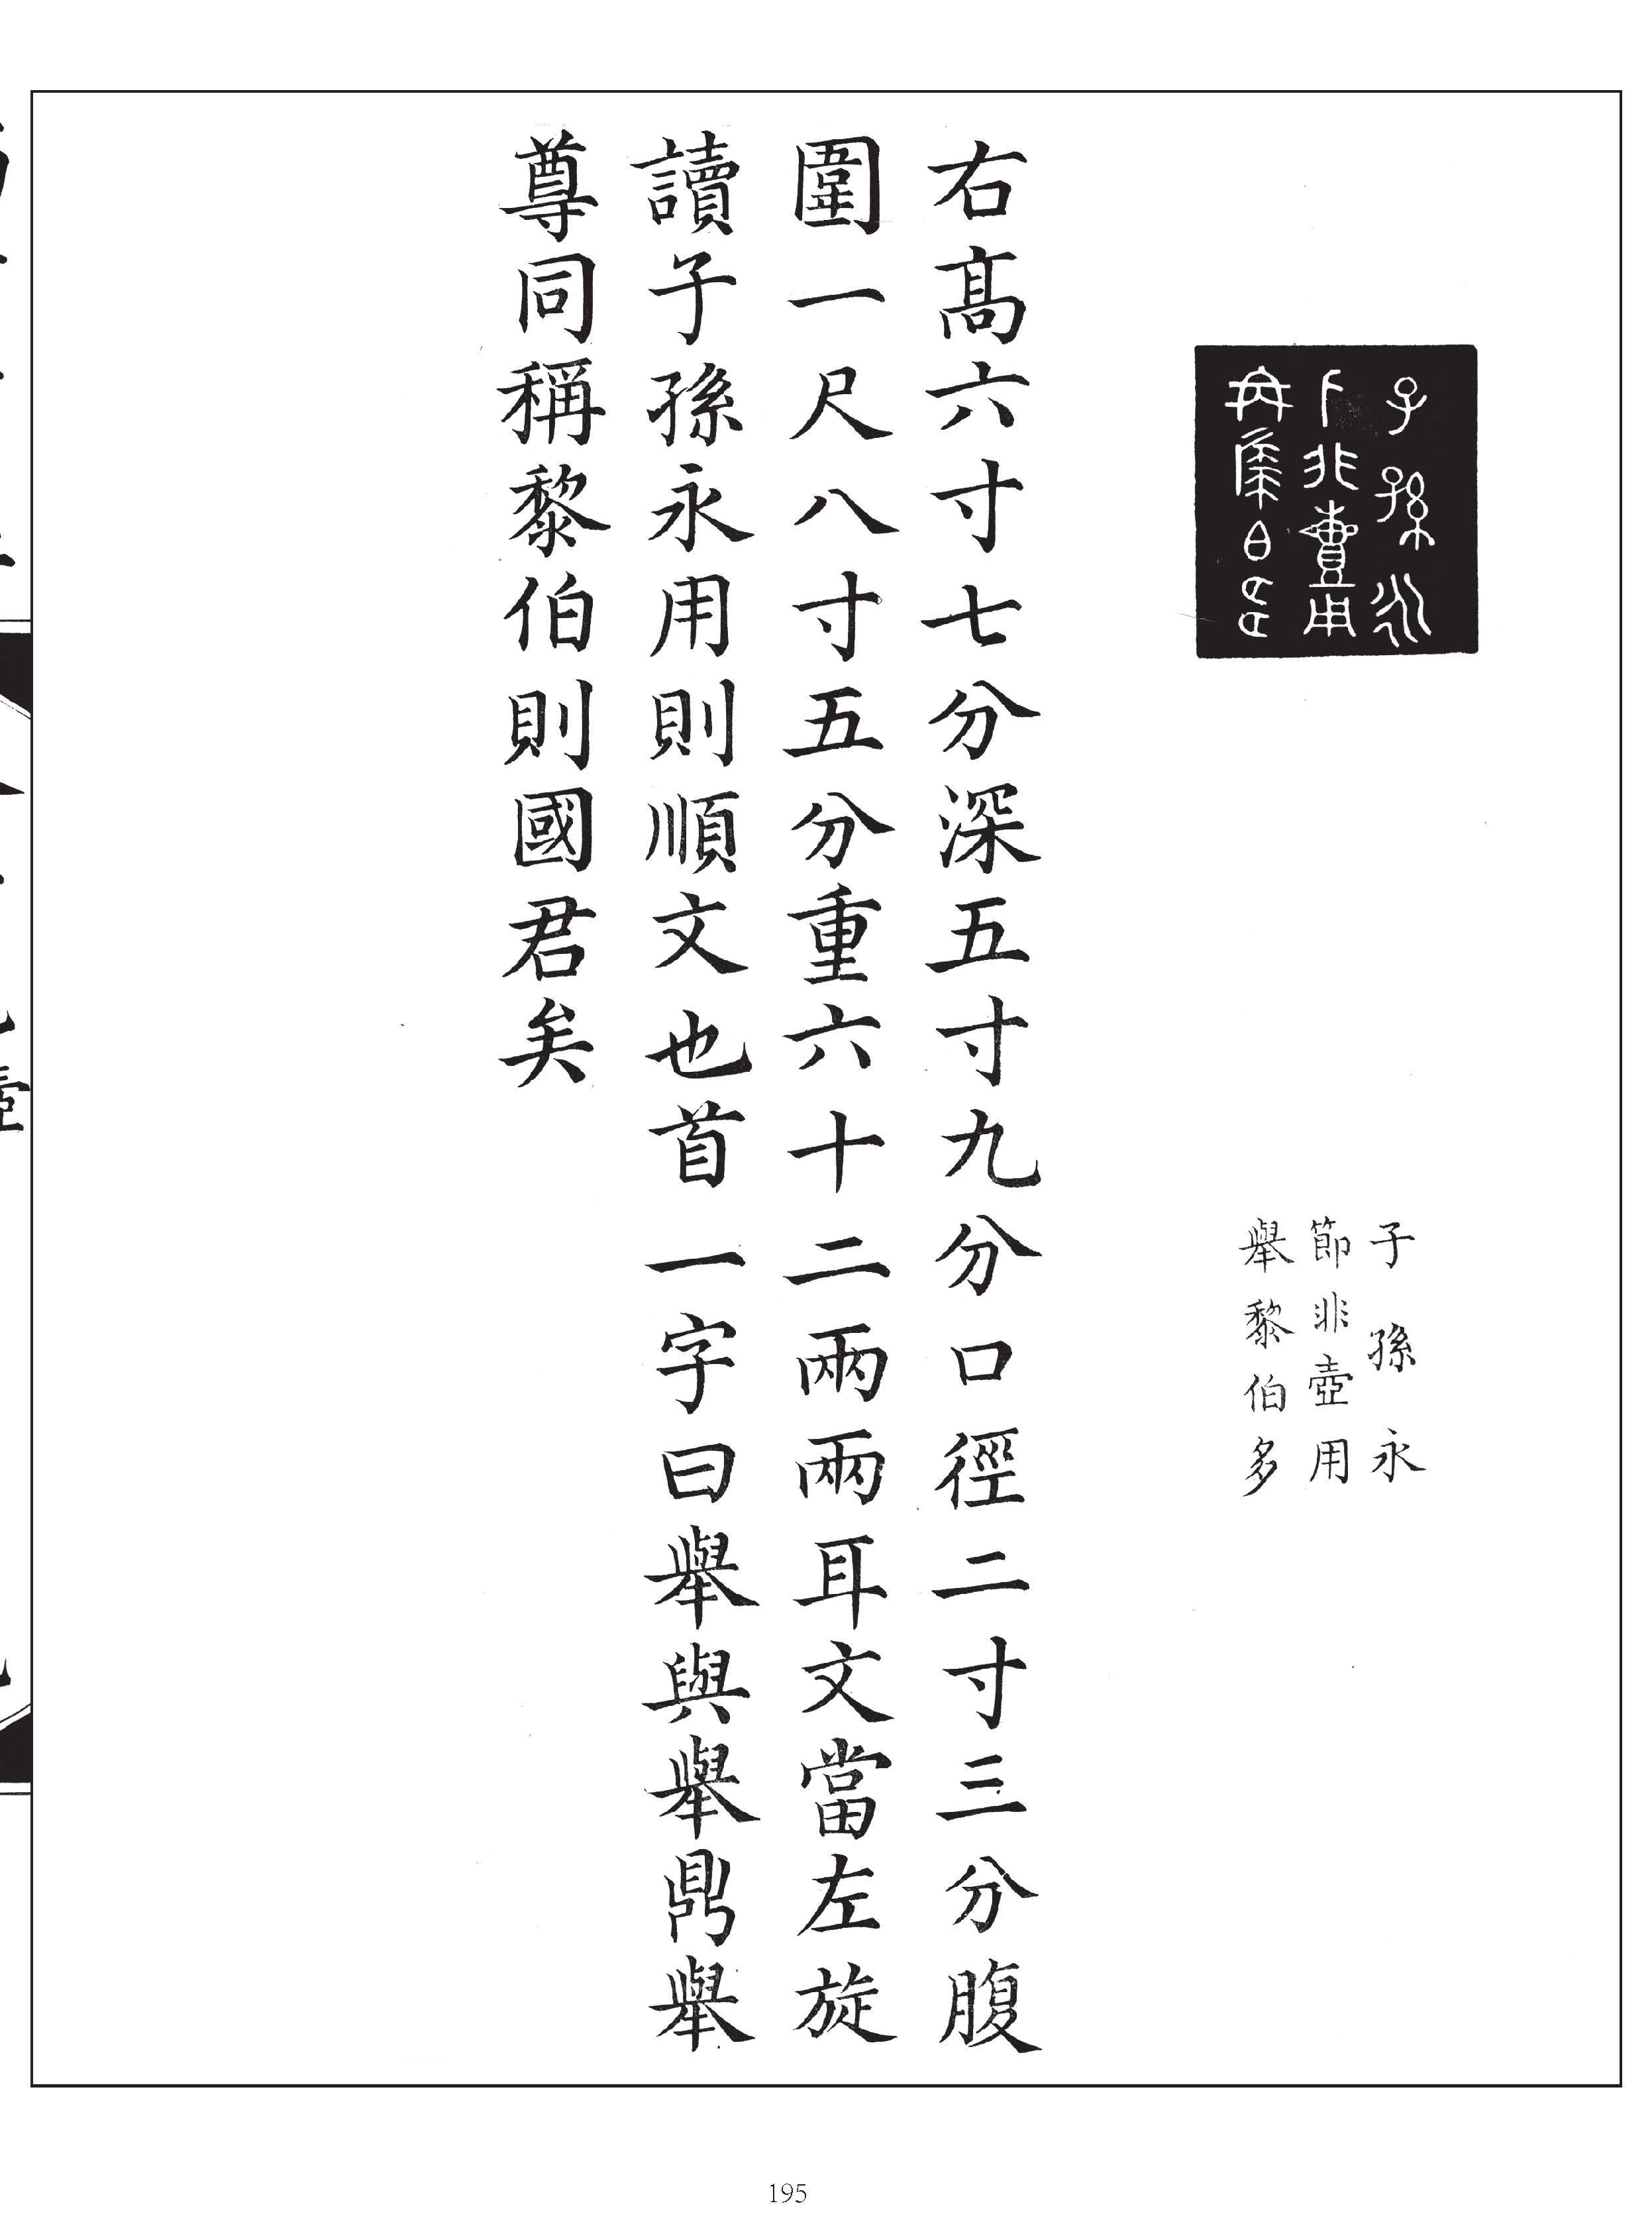 子孫永
節非壺用
舉黎伯多
右高六寸七分深五寸九分口徑二寸三分腹
圍一尺八寸五分重六十二兩兩耳文當左旋
讀子孫永用則順文也首一字曰舉與舉鼎舉
尊同稱黎伯則國君矣
195